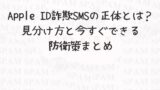 Apple ID詐欺SMSの正体とは？
見分け方と今すぐできる
防衛策まとめ